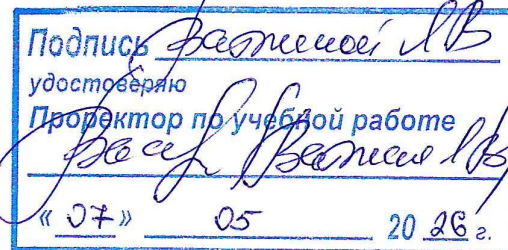 Подпись Вагиной ЛВ
удостоверяю
Проректор по учебной работе
« 07 » 05 20 26 г.